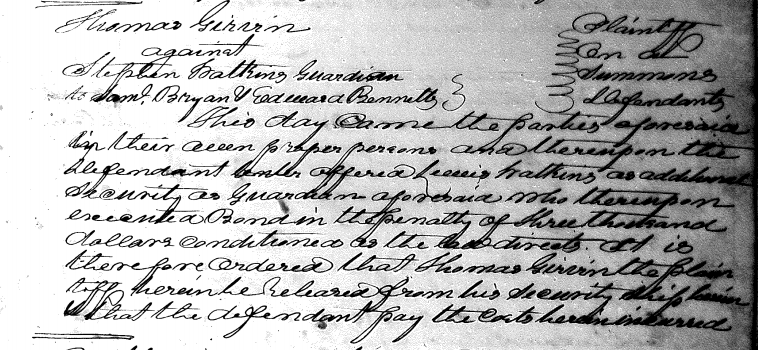 Thomas Girvin Plaintiff
against On a
Stephen Watkins Guardian Summons
to Saml. Bryan & Edward Bennett Defendants
This day came the parties aforesaid
in their own proper persons and thereupon the
Defendant offered Lewis Watkins as additional
Security as Guardian aforesaid who thereupon
executed Bond in the penalty of three thousand
dollars conditioned as the law directs It is
therefore ordered that Thomas Girvin the plain
tiff herein be Released from his Security ship herein
& that the defendant pay the Costs herein incurred